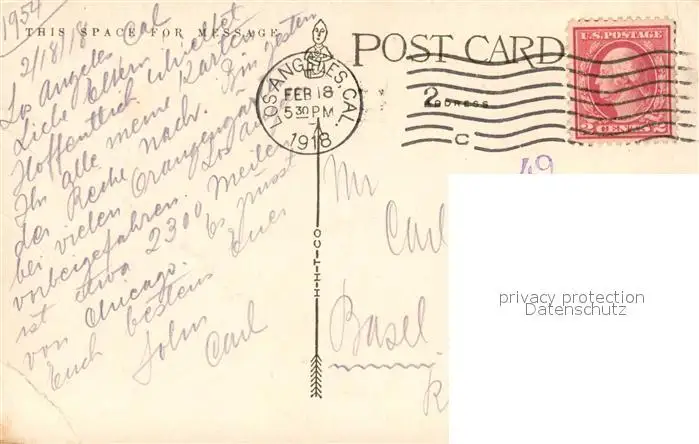 1954
THIS SPACE FOR MESSAGE
POST CARD
Los Angeles Cal
2/18/18
Liebe Eltern
Hoffentlich erhieltet
Ihr alle meine Karten
der Reihe nach. Bin gestern
bei vielen Orangengär
vorbeigefahren. Los an
ist etwa 2300 Meilen
von Chicago. Es grüsst
Euch bestens Euer
Sohn
Carl
LOS ANGELES, CAL.
FEB 18
5 30 PM
1918
2
C
ADDRESS
U.S. POSTAGE
2 CENTS 2
49
H-H-T-CO
Mr
Carl
Basel
privacy protection
Datenschutz